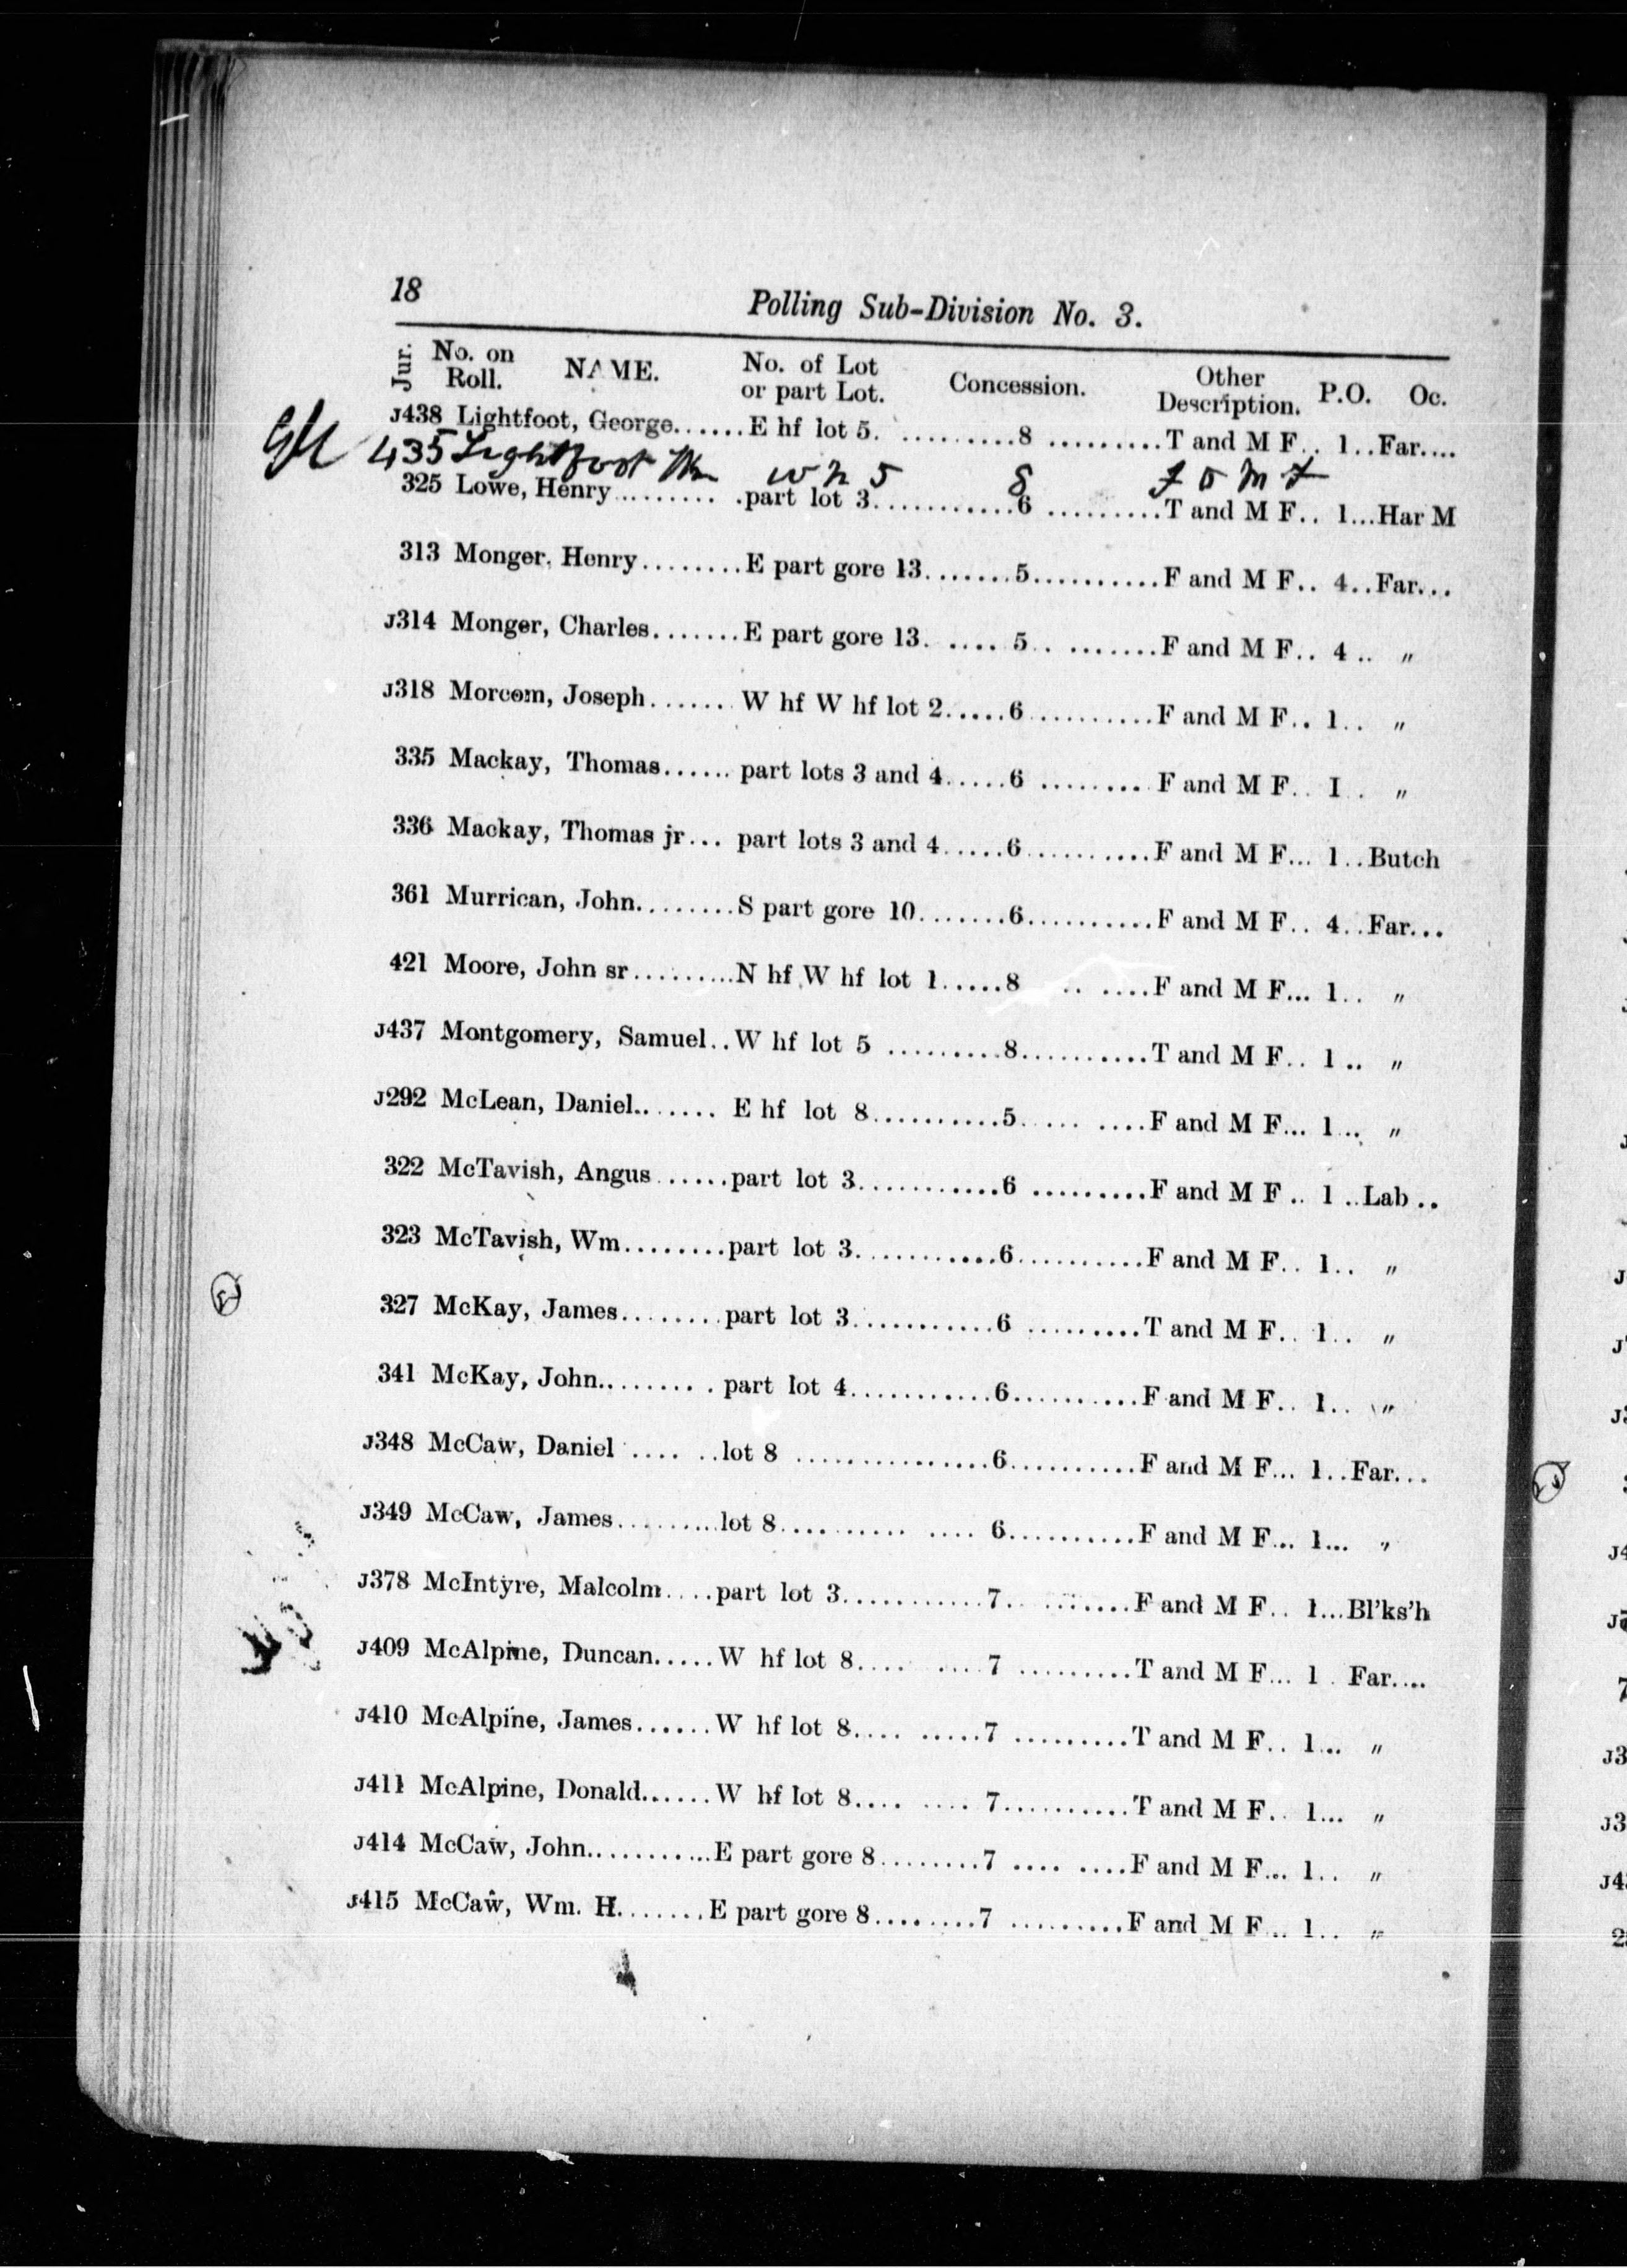 18 Polling Sub-Division No. 3.
Jur. No. on Roll. NAME. No. of Lot or part Lot. Concession. Other Description. P.O. Oc.
J438 Lightfoot, George......E hf lot 5. ..........8 ..........T and M F.. 1..Far....
435 Lightfoot w h 5 8
325 Lowe, Henry......... .part lot 3............6 ..........T and M F.. 1...Har M
313 Monger, Henry.........E part gore 13........5...........F and M F.. 4..Far...
J314 Monger, Charles.......E part gore 13. ..... 5.. ........F and M F.. 4 .. "
J318 Morcom, Joseph....... W hf W hf lot 2.....6...........F and M F.. 1.. "
335 Mackay, Thomas...... part lots 3 and 4.....6 ......... F and M F.. I.. "
336 Mackay, Thomas jr... part lots 3 and 4.....6...........F and M F... 1..Butch
361 Murrican, John........S part gore 10.......6...........F and M F.. 4..Far...
421 Moore, John sr.........N hf W hf lot 1.....8 .. ....F and M F... 1.. "
J437 Montgomery, Samuel..W hf lot 5 .........8...........T and M F.. 1 .. "
J292 McLean, Daniel....... E hf lot 8...........5..... ....F and M F... 1... "
322 McTavish, Angus......part lot 3............6 ..........F and M F .. 1 ..Lab ..
323 McTavish, Wm........part lot 3............6...........F and M F.. 1.. "
327 McKay, James........part lot 3............6 ..........T and M F.. 1.. "
341 McKay, John......... part lot 4............6...........F and M F.. 1.. "
J348 McCaw, Daniel .... ..lot 8 .................6...........F and M F... 1..Far...
J349 McCaw, James.........lot 8.......... .... 6...........F and M F... 1... "
J378 McIntyre, Malcolm....part lot 3............7. .......F and M F.. 1...Bl'ks'h
J409 McAlpine, Duncan.....W hf lot 8.... ....7 ..........T and M F... 1 . Far....
J410 McAlpine, James......W hf lot 8.... .....7 ..........T and M F.. 1... "
J411 McAlpine, Donald......W hf lot 8.... .... 7...........T and M F.. 1... "
J414 McCaw, John...........E part gore 8.........7 .... .....F and M F... 1.. "
J415 McCaw, Wm. H.......E part gore 8.........7 ..........F and M F... 1.. "